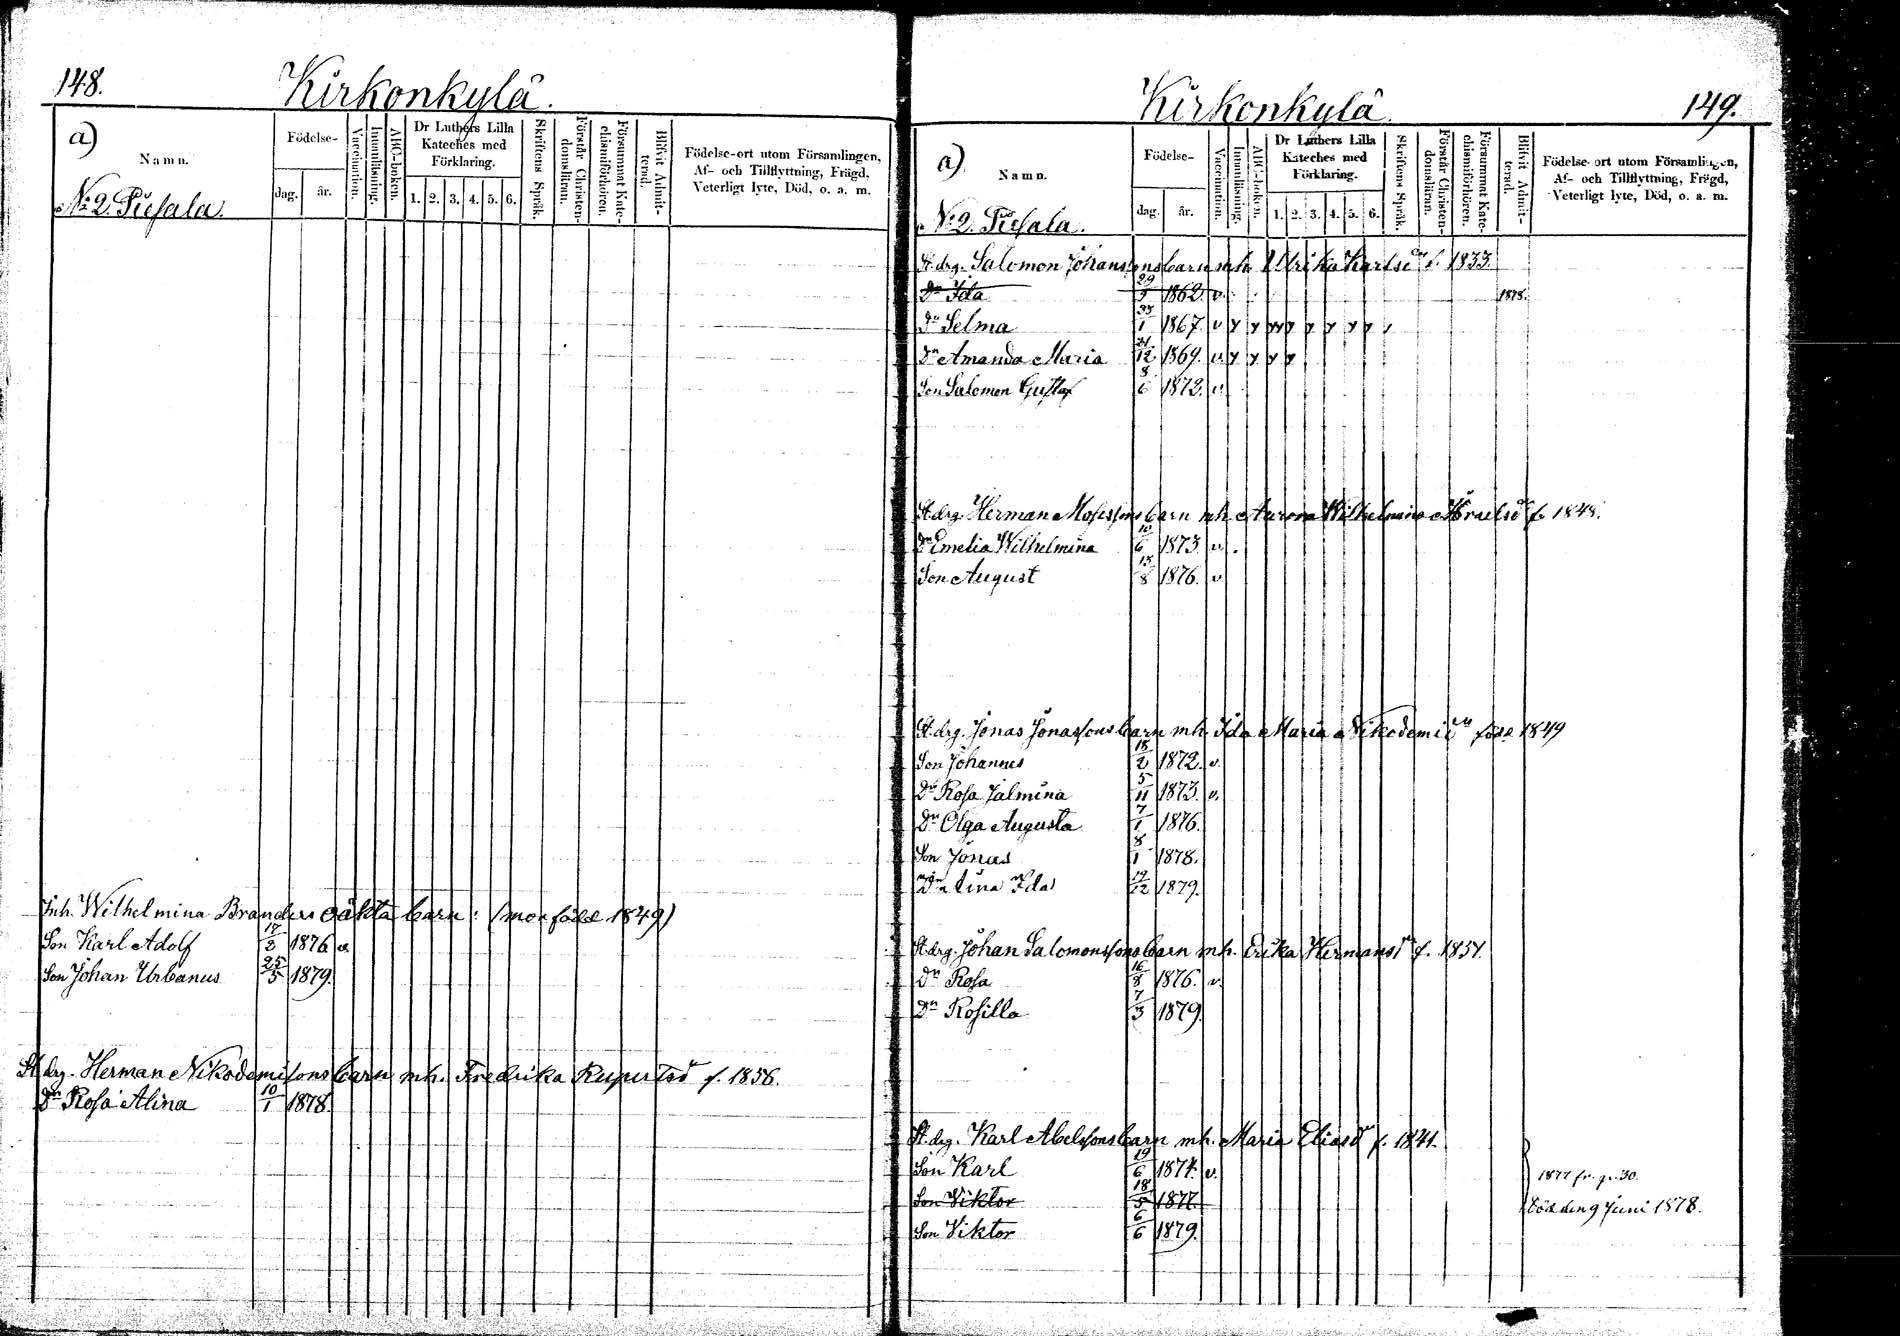 148.
Kirkonkylä.
a)
Namn.
Födelse-
dag.
år.
Vaccination.
Innanläsning.
ABC-boken.
Dr Luthers Lilla
Kateches med
Förklaring.
1. 2. 3. 4. 5. 6.
Skriftens Språk.
Förstår Christen-
domsläran.
Försummat Kate-
chismiförhören.
Blifvit Admit-
terad.
Födelse-ort utom Församlingen,
Af- och Tillflyttning, Frägd,
Veterligt lyte, Död, o. a. m.
No 2. Piesala.
Inh. Wilhelmina Branders oäkta barn: (mor född 1849)
Son Karl Adolf 17/2 1876 v.
Son Johan Urbanus 25/5 1879.
St. drg. Herman Nikodemisons barn mh. Fredrika Rupertsd f. 1856.
Dn Rosa Alina 10/1 1878.
Kirkonkylä
149.
a).
Namn.
Födelse-
dag.
år.
Vaccination.
Innanläsning.
ABC-boken.
Dr Luthers Lilla
Kateches med
Förklaring.
1. 2. 3. 4. 5. 6.
Skriftens Språk.
Förstår Christen-
domsläran.
Försummat Kate-
chismiförhören.
Blifvit Admit-
terad.
Födelse-ort utom Församlingen,
Af- och Tillflyttning, Frägd,
Veterligt lyte, Död, o. a. m.
No 2. Piesala.
St. drg. Salomon Johanssons barn mh. Ulrika Karlsdr f. 1833.
Dn Ida 29/5 1862. v. 1878.
Dn Selma 1867. v
Dn Amanda Maria 21/12 1869. v.
Son Salomon Gustaf 8/6 1872. v.
St. drg. Herman Mosessons barn mh. Aurora Wilhelmina Israelsd f. 1848.
Dn Emelia Wilhelmina 10/6 1873 v.
Son August 13/8 1876. v
St. drg. Jonas Jonassons barn mh. Ida Maria Nikodemidr född 1849
Son Johannes 18/2 1872. v.
Dn Rosa Jalmina 5/11 1873. v.
Dn Olga Augusta 7/1 1876.
Son Jonas 8/1 1878.
Dn Lina Ida 19/12 1879.
St. drg. Johan Salomonssons barn mh. Erika Hermansdr f. 1851.
Dn Rosa 16/8 1876. v.
Dn Rosilla 7/3 1879
St. drg. Karl Abelssons barn mh. Maria Eliasdr f. 1841.
Son Karl 19/6 1874. v. 1877 fr. p. 30.
Son Viktor 18/5 1877. död den 9 Juni 1878.
Son Viktor 6/6 1879.